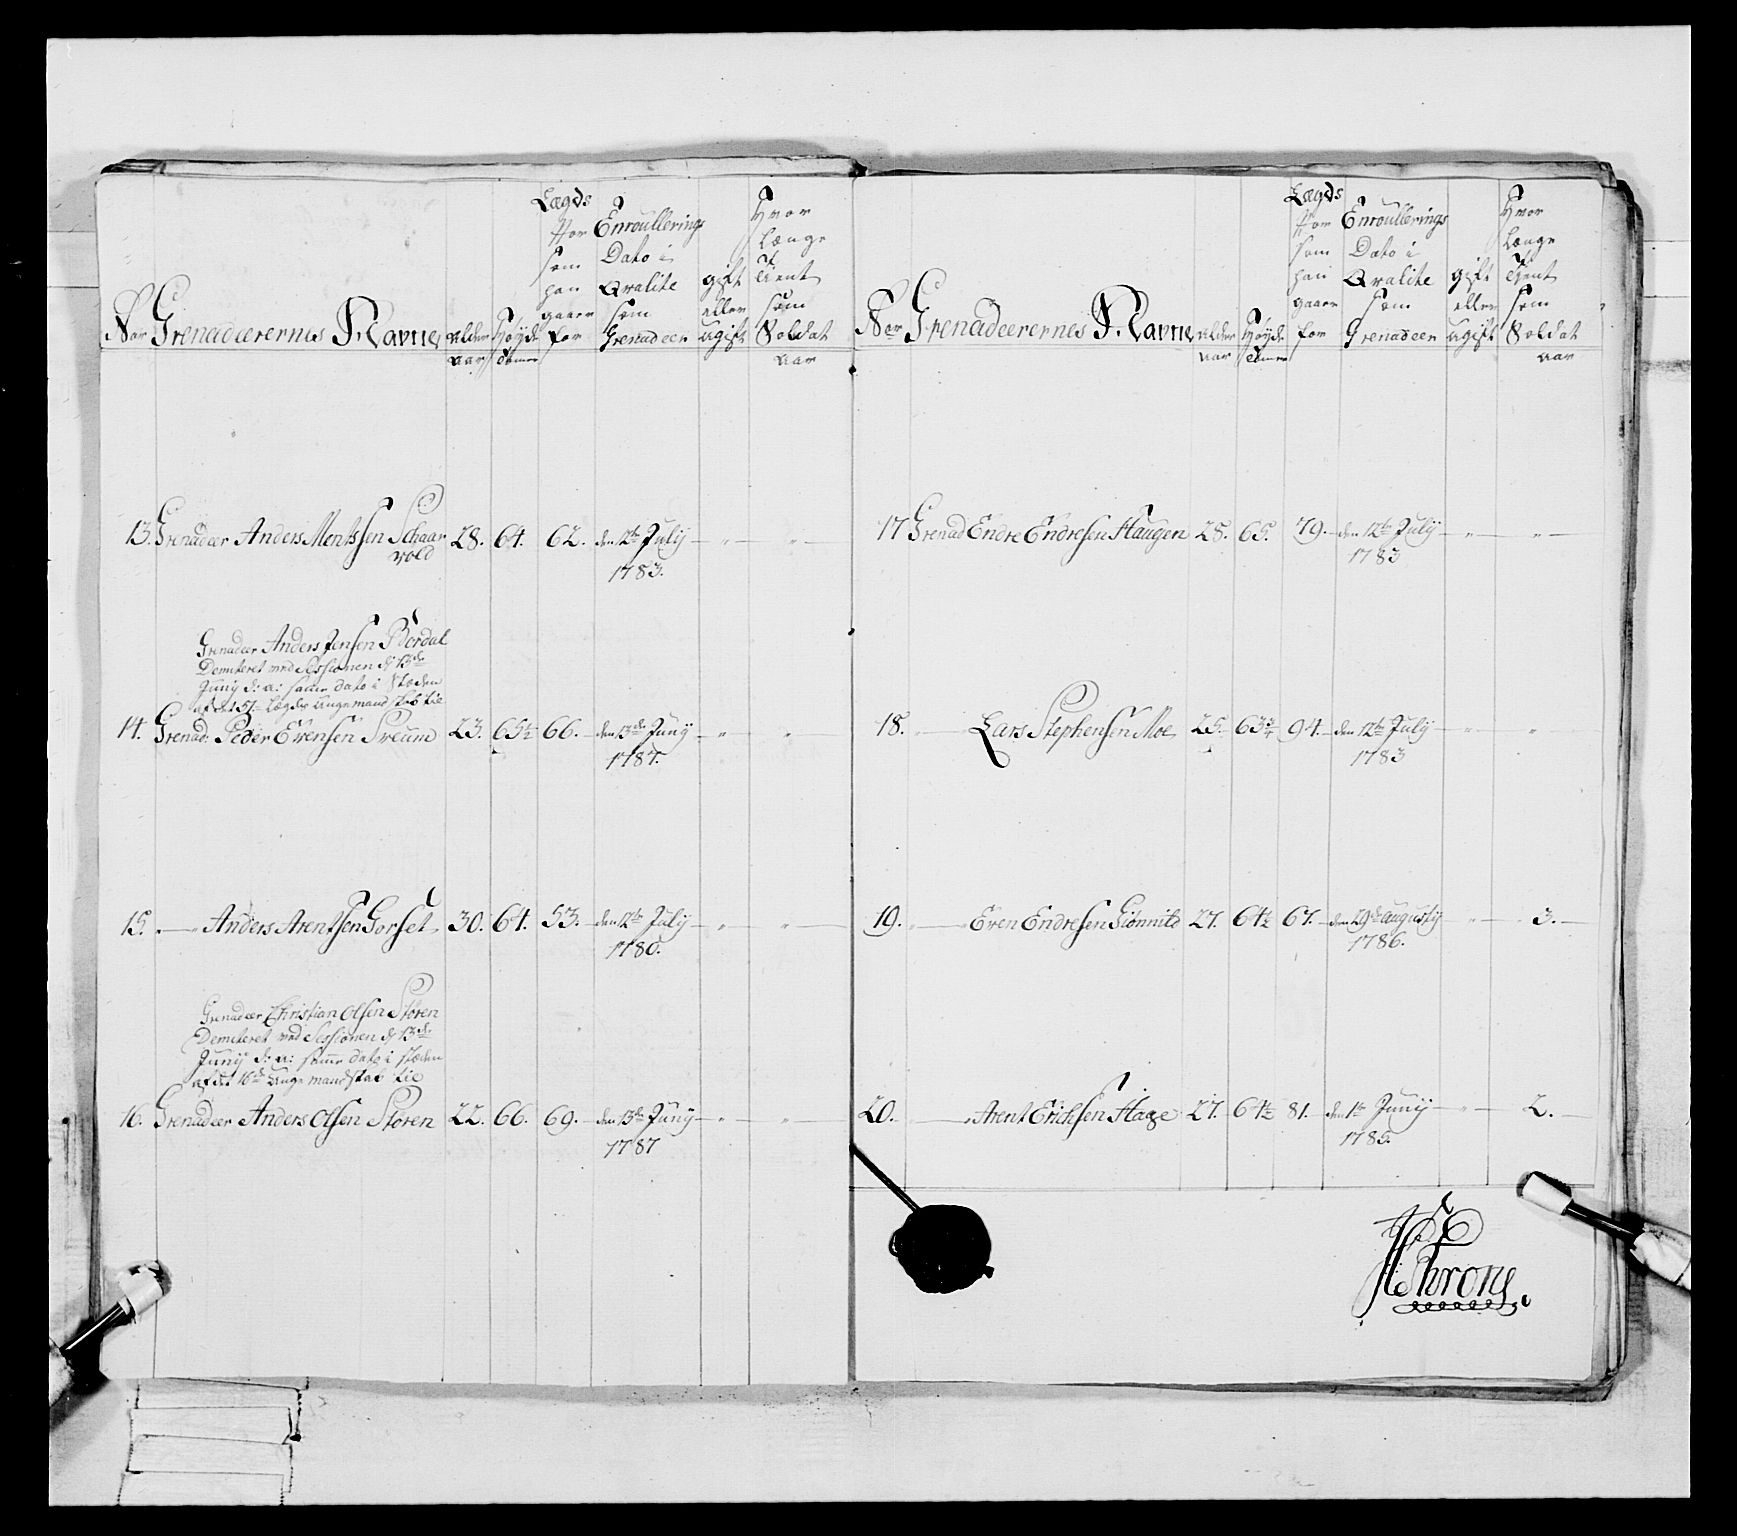 Nor Grenadeerernes Navne
Alder
Aar
Høyde
Tomer
Lægds
Nor
som
han
gaaer
for
Enroullerings
Dato i
Qvalite
som
Grenadeer
gift
eller
ugift
Hvor
længe
tient
som
Soldat
Aar
13. Grenadeer Anders Mentssen Schaar 28. 64. 62. den 12te July — " — " —
vold
1783.
Grenadeer Anders Jensen Bordal
Demiteret ved Sessionen d 13de
Juny d: a: samme dato i Stæden
af det 51 Lægds Unge mandskab til
14. Grenad: Peder Evensen Sreum 23. 65½ 66. den 13de Juny — " — "
1787.
15. — " — Anders Arentsen Gorset 30. 64. 53. den 12te July — " — " —
1780.
Grenadeer Christian Olsen Støren
Demiteret ved Sessionen d 13de
Juny d: a: samme dato i stæden
af det 16de Unge mandskab til
16. Grenadeer Anders Olsen Støren 22. 66. 69. den 13de Juny — " — " —
1787
Nor Grenadeerernes Navne
Alder
Aar
Høyde
Tomer
Lægds
Nor
som
han
gaaer
for
Enroullerings
Dato i
Qvalite
som
Grenadeer
gift
eller
ugift
Hvor
længe
tient
som
Soldat
Aar
17 Grenad Endre Endresen Haugen 28. 65. 79. den 12te July — " — " —
1783
18. " — Lars Stephensen Moe 25. 63¾ 94. den 12te July — " — " —
1783
19. " — " Even Endresen Giønnild 27. 64½ 67. den 29de Augusty " — 3. —
1786.
20. — " Arent Erichsen Hage 27. 64½ 81. den 1te Juny — " — 2. —
1785.
Throne